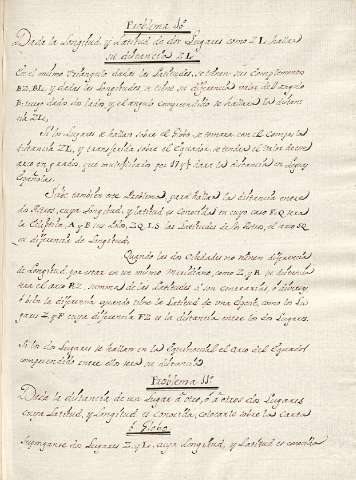 Problema 10
Dada la Longitud y Latitud de dos Lugares como Z L hallar
su distancia Z L
En el mismo Triangulo dadas las Latitudes, se tienen sus Complementos
BZ, BL, y dadas las Longitudes, se tiene su diferencia valor del angulo
B: luego dado dos lados y el angulo comprendido se hallará la distancia
ZL,
Si los Lugares se hallan sobre el Globo se tomara con el Compas la
distancia ZL, y transferida sobre el Equador, se tendra el valor de este
arco en grados, que multiplicados por 17 1/2 dara la distancia en leguas
Españolas.
Sirve tambien este Problema para hallar la distancia entre
dos Astros, cuya Longitud, y latitud es conocida en cuyo caso EQ sera
la Ecliptica, A y B sus Polos, ZQ LS las Latitudes de los Astros, el arco SQ
su diferencia de Longitud,
Quando las dos Ciudades no tienen diferencia
de Longitud, por estar en un mismo Meridiano, como Z y R su distancia
sera el arco RZ, summa de las Latitudes si son contrarias, ó distinta,
ó bien la diferencia quando tiene la Latitud de una Especie, como los Lugares
Z y F cuya diferencia FZ es la distancia entre los dos Lugares.
Si los dos Lugares se hallan en la Equinoccial el Arco del Equador
comprendido entre ellos sera su distancia
Problema 11º
Dada la distancia de un Lugar á otro, ó á otros dos Lugares
cuya Latitud, y Longitud es conocida, colocarle sobre la Carta
ó Globo
Supongase dos Lugares Z, y L, cuya Longitud, y Latitud es conocida